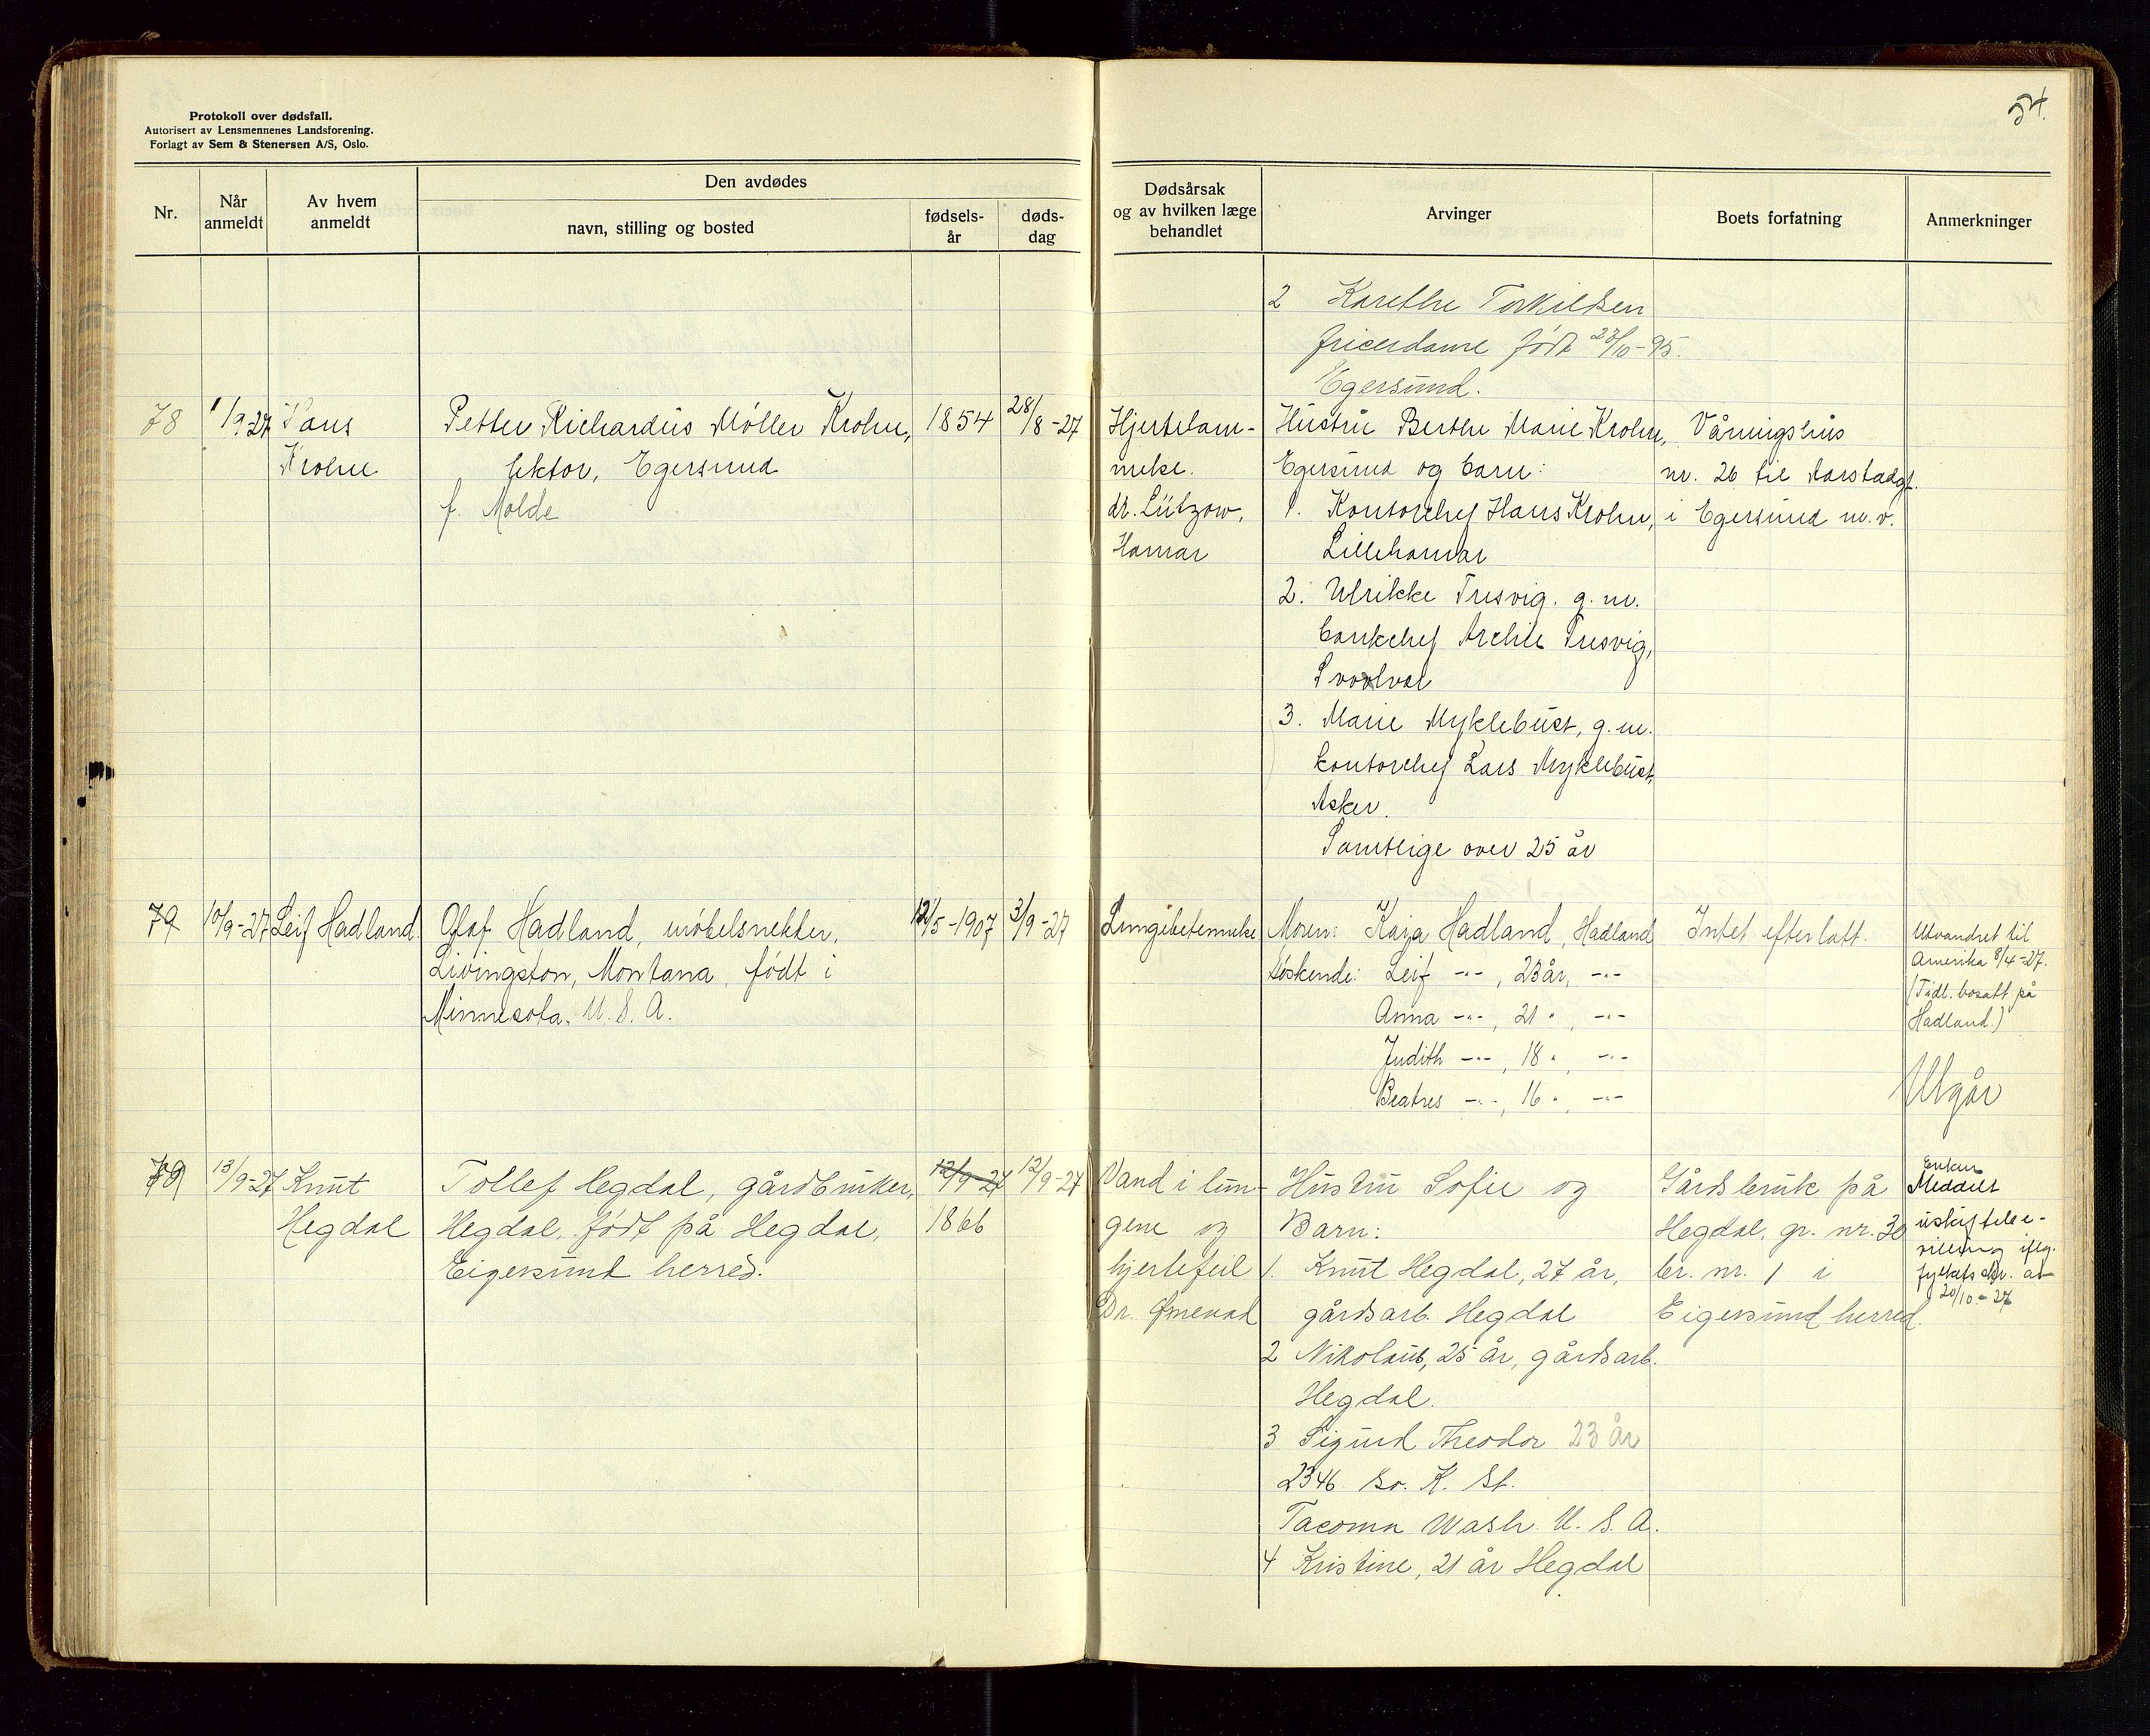 Protokoll over dødsfall.
Autorisert av Lensmennenes Landsforening.
Forlagt av Sem & Stenersen A/S, Oslo.
54.
Nr.
Når anmeldt
Av hvem anmeldt
Den avdødes
navn, stilling og bosted
fødsels-år
døds-dag
Dødsårsak
og av hvilken læge
behandlet
Arvinger
Boets forfatning
Anmerkninger
2 Karethe Torkildsen
fricerdame født 23/10-95.
Egersund.
78 1/9 27 Hans
Krohn
Petter Richardus Møller Krohn,
lektor, Egersund
f. Molde
1854
28/8-27
Hjertelam-
melse.
dr. Lützow,
Hamar
Hustru Berthe Marie Krohn,
Egersund og barn:
1. Kontorchef Hans Krohn,
Lillehamar
2. Ulrikke Tresvig. g. m.
bankchef Tresvig,
Svolvær
3. Marie Myklebust, g. m.
kontorchef Lars Myklebust,
Asker.
Samtlige over 25 år
Våningshus
nr. 26 til Aarstadgt.
i Egersund m. v.
79 10/9-27 Leif Hadland.
Olaf Hadland, møbelsnekker,
Livingston, Montana, født i
Minnesota. U. S. A.
12/5-1907
3/9-27
Lungebetennelse
Moren: Kaja Hadland, Hadland
Søskende: Leif -"-, 23 år, -"-
Anna -"-, 21 ", -"-
Judith -"-, 18 ", -"-
Beatres -"-, 16 ", -"-
Intet efterlatt.
Utvandret til
Amerika 8/4-27.
(Tidl. bosatt på
Hadland.)
Utgår
79 13/9-27 Knut
Hegdal
Tollef Hegdal, gårdbruker,
Hegdal, født på Hegdal,
Eigersund herred.
12/9 27
1866
12/9-27
Vand i lun-
gene og
hjertefeil
Dr.
Hustru Sofie og
Barn:
1. Knut Hegdal, 27 år,
gårdsarb. Hegdal
2 Nikolaus, 25 år, gårdsarb.
Hegdal.
3 Sigurd Theodor 23 år
2346 So. K. St.
Tacoma Wash. U. S. A.
4 Kristine, 21 år Hegdal
Gårdsbruk på
Hegdal, gr. nr. 30
br. nr. 1 i
Eigersund herred.
Enken
Meddelt
uskiftebe-
villing iflg.
fylkets skr. av
20/10-27